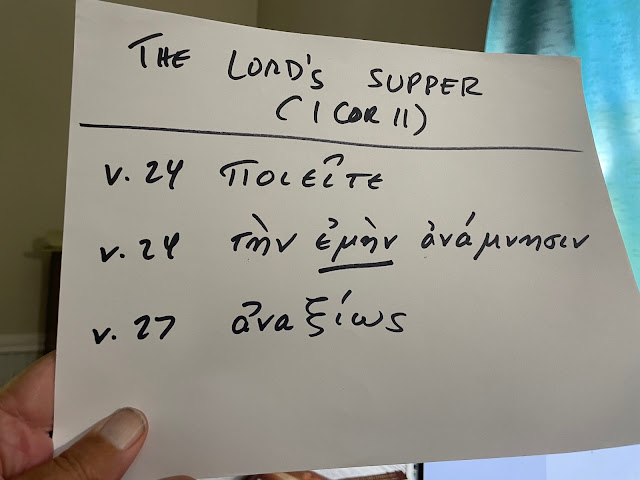 THE LORD'S SUPPER
(1 COR 11)
v. 24 ποιεῖτε
v. 24 τὴν ἐμὴν ἀνάμνησιν
v. 27 ἀναξίως